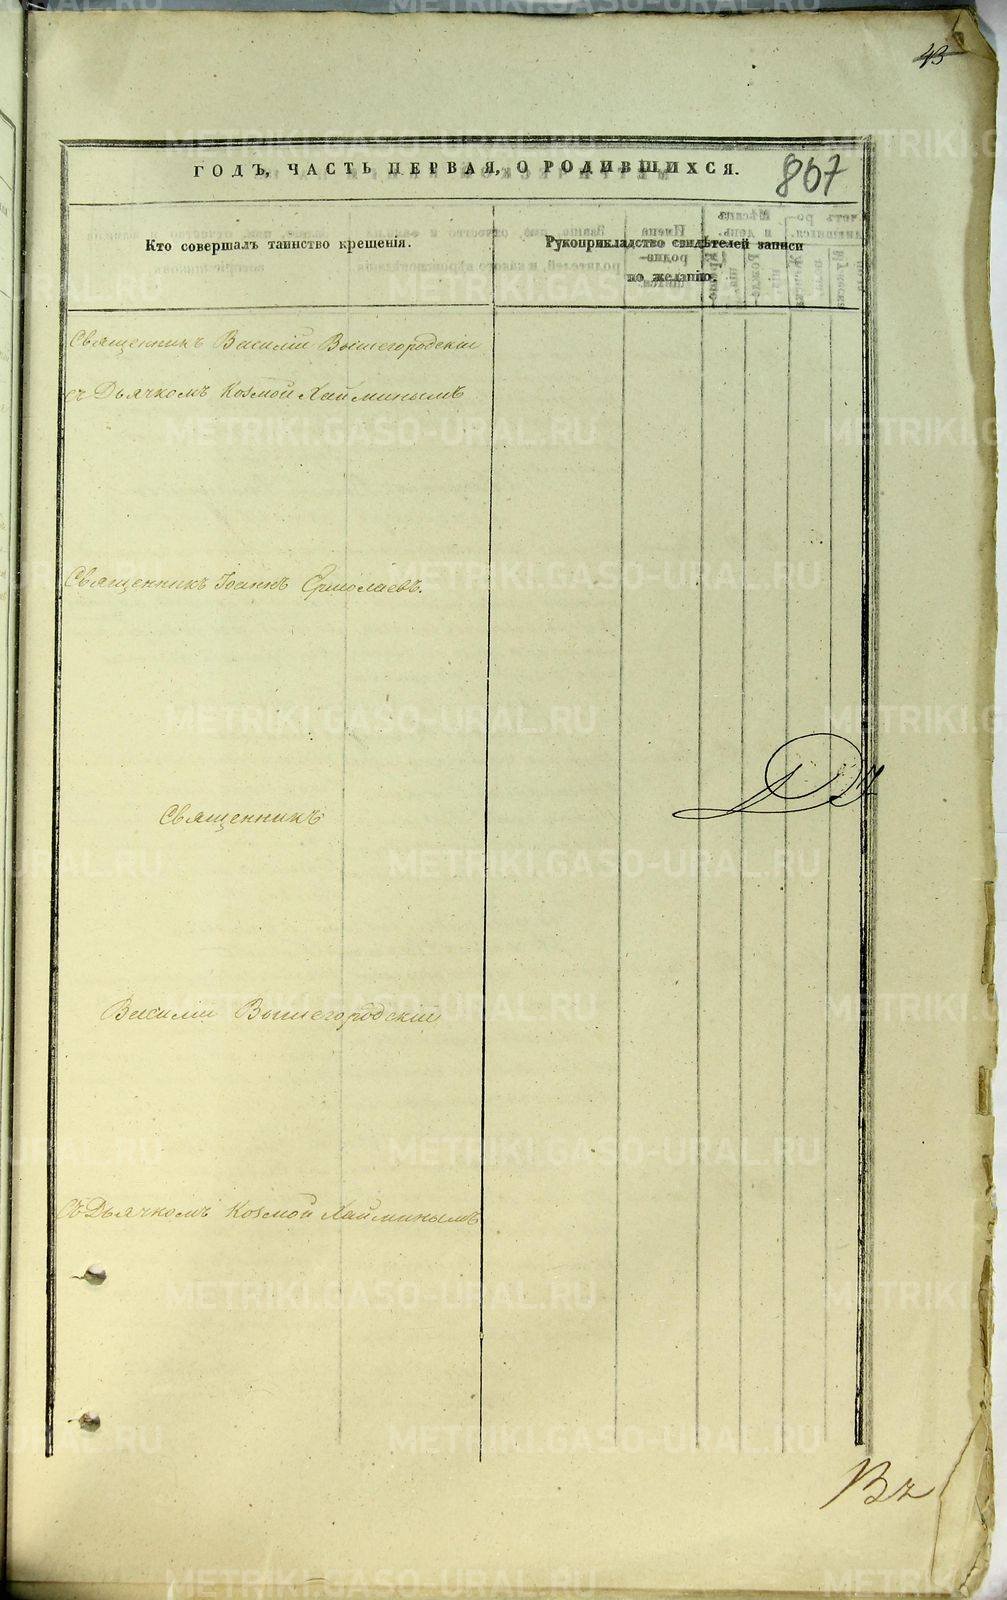 43
867
ГОДЪ, ЧАСТЬ ПЕРВАЯ, О РОДИВШИХСЯ.
Кто совершалъ таинство крещенія.
Рукоприкладство свидѣтелей записи
по желанію.
Священникъ Василій Вышегородскій
съ Дьячкомъ Козмой Хайминымъ
Священникъ Іоаннъ Ермолаевъ.
Священникъ
Василій Вышегородскій
Съ Дьячкомъ Козмой Хайминымъ
METRIKI.GASO-URAL.RU